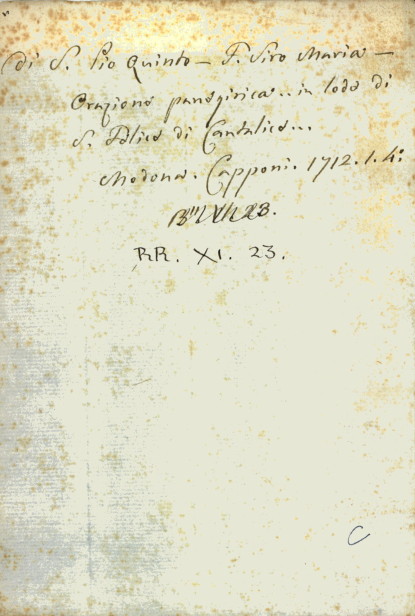 di S. Pio Quinto — F. Siro Maria —
Orazione panegirica .. in lode di
S. Felice di Cantalice...
Modona. Capponi. 1712. 1. 4:
RR. XI. 23.
C